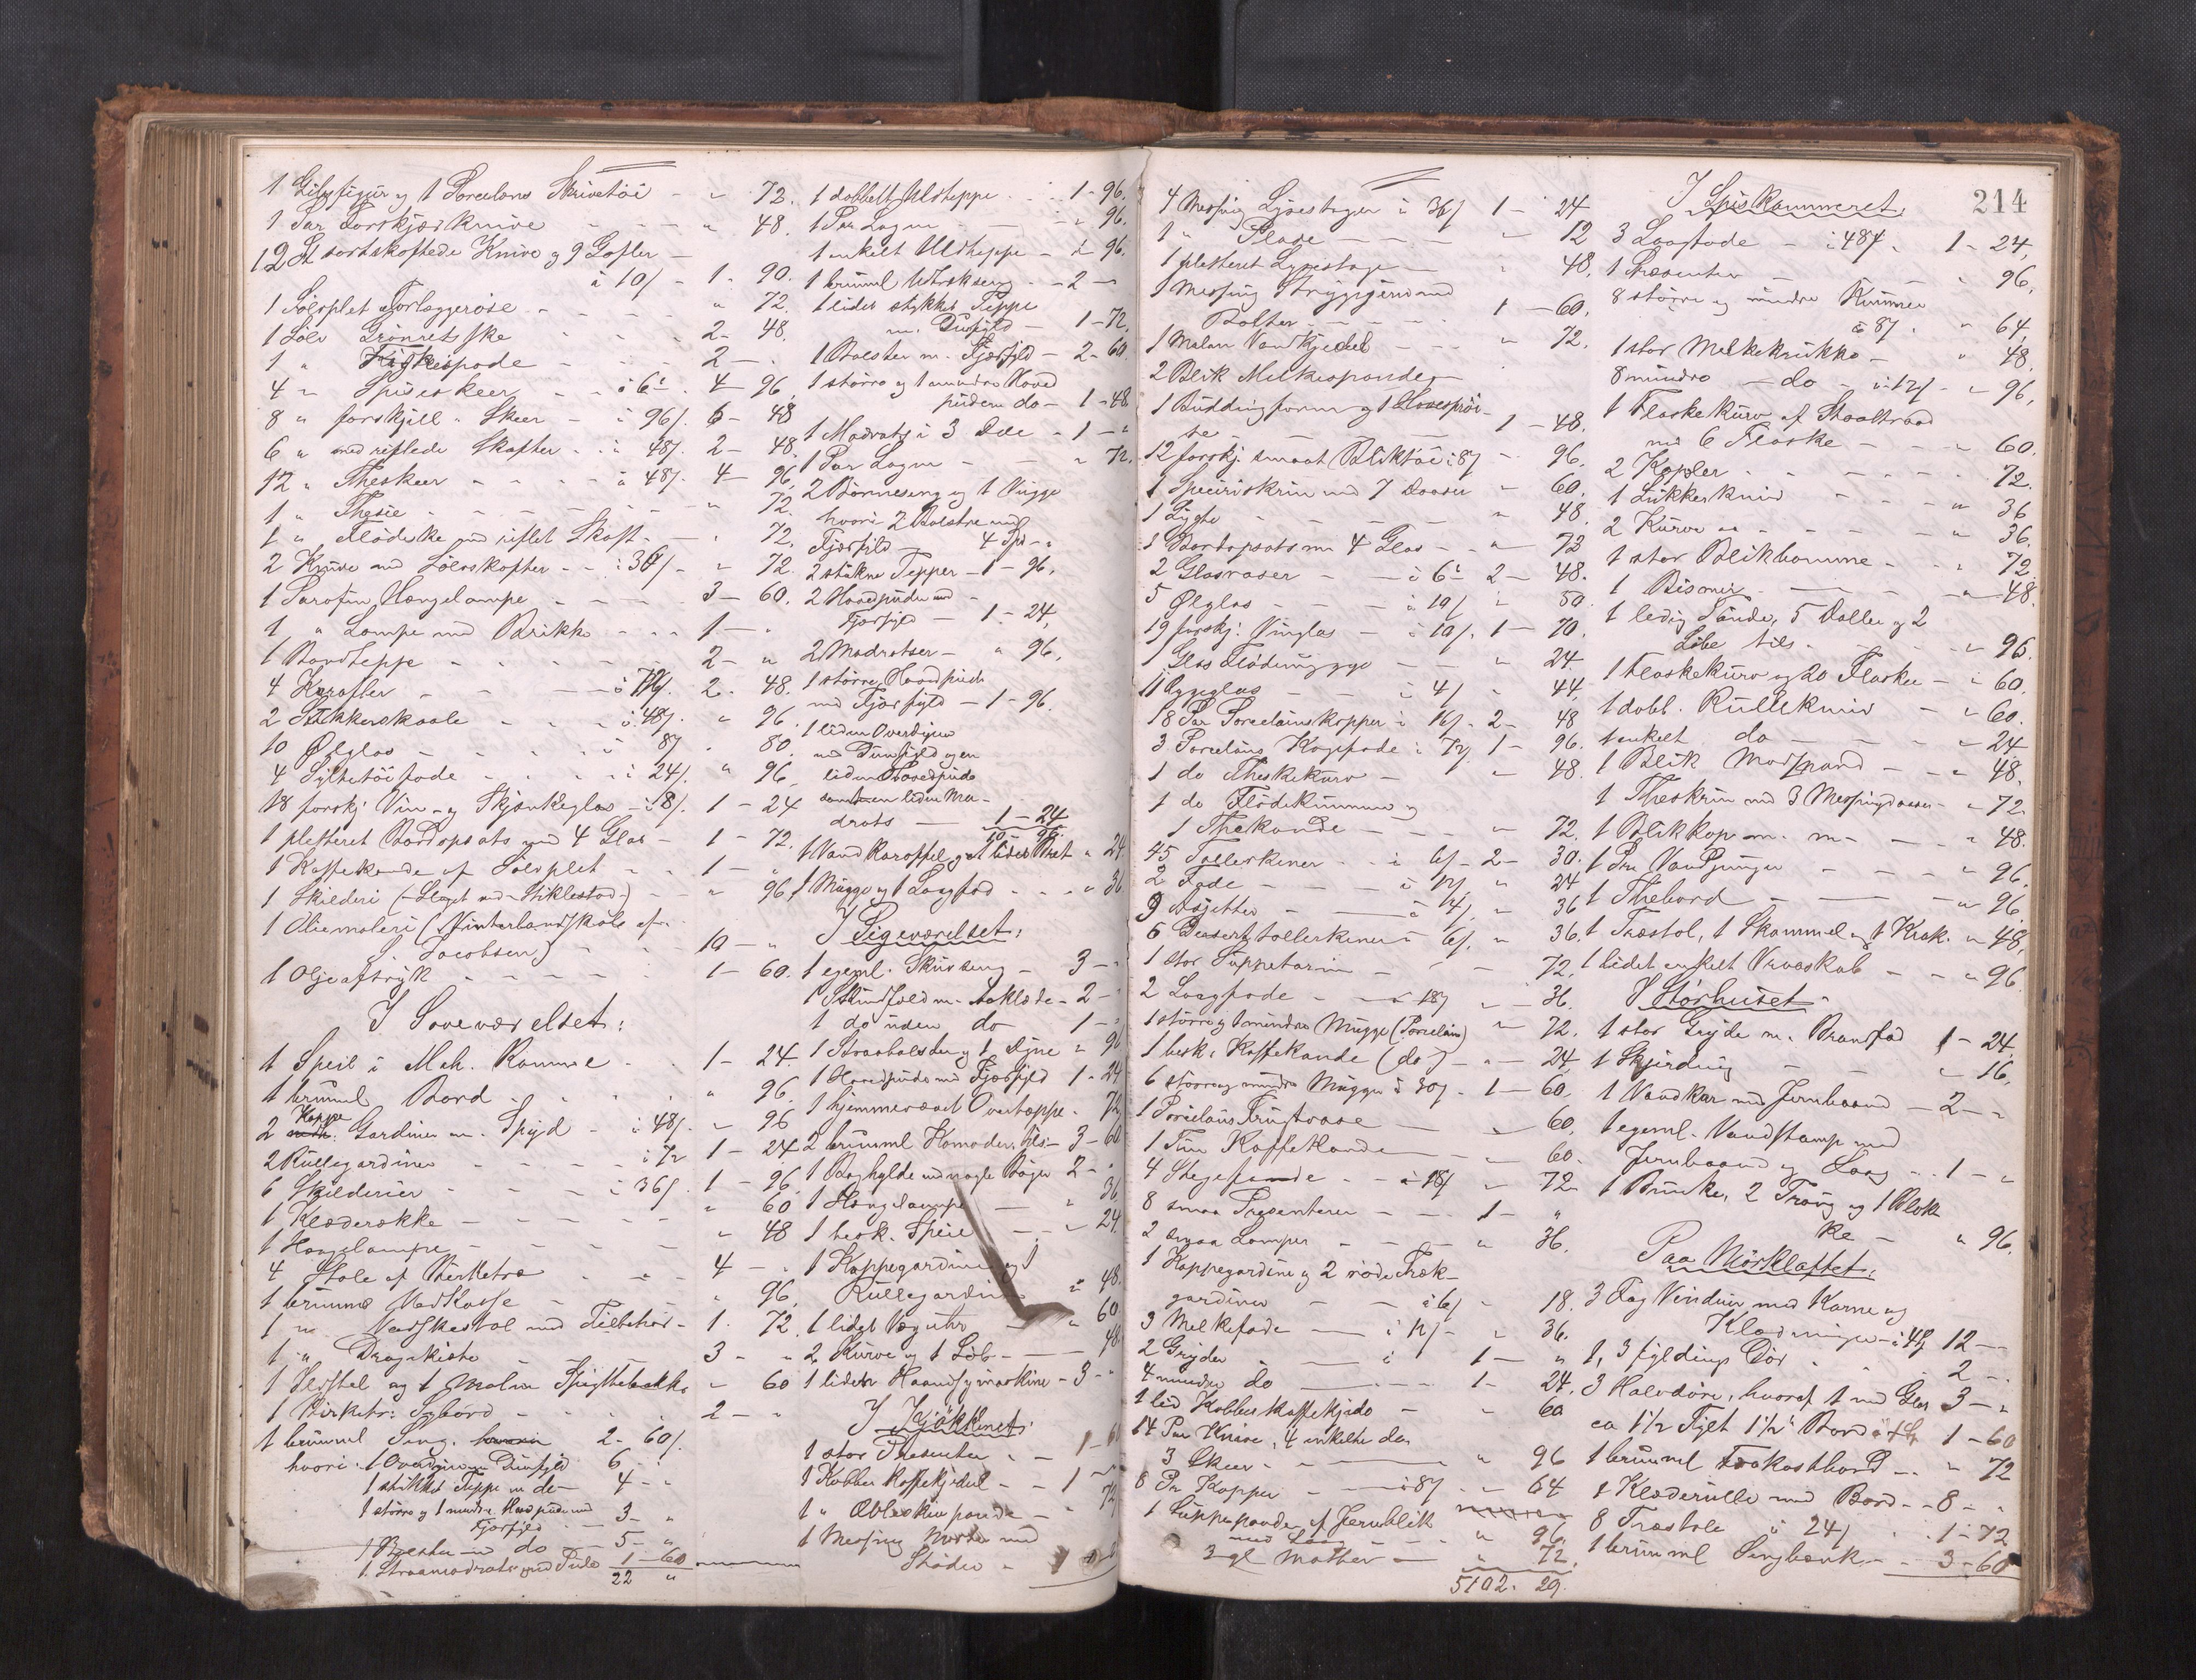 1 Gibsfigur og 1 Porcelæns Skrivetöi - " 72.
1 Par Forskjærknive - - - " 48.
12 St sortskaftede Knive og 9 Gafler -
à 10/ - 1 - 90.
1 Sölvplet Forlæggeröse - - - " 72.
1 Sölv Grönretsske - - - 2 - 48.
1 " Fiskespade - - - 2 - "
4 " Spiseskeer - - à 6/ . 4 - 96
8 " forskjell " Skeer - à 96/. 6 - 48
6 " med riflede Skafter - - à 48/. 2 - 48.
12 " Theskeer - - - à 48/. 4 - 96.
1 " Thesie - - - - " 72.
1 " Flödeske med riflet Skaft - - " 72.
2 Knive med Sölvskafter - - à 36/ - " 72.
1 Parafin Hængelampe - - - 3 - 60.
1 " Lampe med Brikke - - - 1 - "
1 Bordteppe - - - - 2 - "
4 Karafler - - - à 72/. 2 - 48.
2 Sukkerskaale - - - à 48/. " 96.
10 Ølglas - - - à 8/ " 80.
4 Syltetöifade - - - à 24/. " 96.
18 forskj. Vin- og Skjænkeglas - à 8/. 1 - 24
1 plettered Bordopsats med 4 Glas - 1 - 72.
1 Kaffekande af Sölvplet - - 1 - "
1 Skilderi (- Slaget ved Stiklestad -) - - " 96.
1 Oliemaleri (Vinterlandskab af
S. Jacobsen) - - - 10 - "
1 Oljeaftryk - - - - 1 - 60.
I Soveværelset:
1 Speil i Mah. Ramme - - 1 - 24.
1 brunml Bord - - - " 96.
Kappe
2 Gardiner m. Spyd - à 48/ - " 96
2 Rullegardiner - - - à 72 1 - 24
6 Skilderier - - - à 36/. 1 - 96.
1 Klæderække - - - - " 60
1 Hængelampe - - - - " 48
4 Stole af Birketræ - - - 4 - "
1 brunml Vadskasse - - - " 96.
1 " Vadskestol med Tilbehör - 1 - 72.
1 " Dragkiste - - - 3 - "
1 Ildstel og 1 Malm - " 60
1 Birketr: Sybord - - - 2 - "
1 brunml Seng. 2 - 60/.
hvori: 1 Overdyne m. Dunfyld 6 - "
1 stikket Teppe m. do - 4 - "
1 större og 1 mindre Hovedpude med
Fjærfyld - 3 - "
1 Bolster m do - 5 - "
1 Straamadrats med Pude 1 - 60
22 "
1 dobbelt Uldteppe - - 1 - 96.
1 Par Lagen - - - " 96.
1 enkelt Uldteppe - " 96.
1 brunml Udtrækseng - - 2 - "
1 lidet stykket Teppe
m. Dunfyld - 1 - 72.
1 Bolster m. Fjærfyld - 2 - 60.
1 större og 1 mindre Hoved
puder m do - 1 - 48.
1 Madrats i 3 Dele - 1 - "
1 Par Lagen - - " 72.
2 Börneseng og 1 Vugge
hvori 2 Bolstre med
Fjærfyld - 4 Spd - "
2 stukne Tepper - 1 - 96.
2 Hovedpuder med
Fjærfyld - 1 - 24,
2 Madratser - " 96.
1 större Hovedpude
med Fjærfyld - 1 - 96.
1 liden Overdyne
med Dunfyld og en
liden Hovedpude
samt en liden Ma-
drats - 1 - 24
1 Vandkaraffel og 1 lidet Bret " 24.
1 Mugge og 1 Laagfad - - - " 36
I Pigeværelset:
1 egeml. Skuvseng - 3 - "
1 Skindfeld m. Aaklæde - 2 - "
1 do uden do 1 - "
1 Straabolster og 1 Dyne " 96
1 Hovedpude med Fjærfyld 1 - 24
1 hjemmevævet Overteppe - " 72
2 brunml Komoder, tils - 3 - 60
1 Boghylde med nogle Böger 2 - "
1 Hængelampe - " 36
1 besk. Speil - - " 24
1 Kappegardin og 1
Rullegardin " 48.
1 lidet Væguhr - " 60.
2 Kurve og 1 Löb - - - " 48
1 liden Haandsymaskine - 3 - "
I Kjökkenet:
1 stor Presenter - - 1 -
1 Kobber Kaffekjedel - - 1 -
1 " Æbleskivpande - " 72
1 Messing Morter med
Stöder -
4 Messing Lysestager à 36/ 1 - 24
1 " Plade - - - " 12
1 pletteret Lysestage - - " 48.
1 Messing Strygejern med
Bolter - - - 1 - 60.
1 Malm Vandkjedel - - - " 72.
2 Blik Melkespande -
1 Buddingform og 1
se - - - 1 - 48.
12 forskj. smaat Bliktöi à 8/ - 96.
1 med 7 Daaser " 60.
1 Lygte - - - - " 48.
1 Bordopsats m 4 Glas - - " 72
2 Glasvaser - - à 6/ 2 - 48.
5 Ølglas - - - à 10/ " 50.
19 forskj. Vinglas - à 10/. 1 - 70.
1 Glas Flödemugge - - " 24.
11 Æggeglas - - à 4/ " 44.
18 Par Porcelainskopper à 16/. 2 - 48
3 Porcelains Kagefade à 72/ 1 - 96.
1 do Theskekurv - " 48.
1 do Flödekumme og
1 Thekande - - - " 72.
45 Tallerkener - - à 6/ - 2 - 30.
2 Fade - - - à 12/ " 24
9 Asjetter - - à 4/. " 36
6 Desserttallerkener à 6/. " 36.
1 stor Suppeterin - - - 72.
2 Laagfade - - à 18/ " 36.
1 större og 1 mindre Mugge (Porcelain) " 72.
1 besk: Kaffekande (do) - " 24,
6 större og mindre Mugger à 30/. 1 - 60,
1 Porcelains Frugtvase - " 60,
1 Tin Kaffekande - " 60.
4 Stegefande - - à 18/ " 72.
8 smaa Presenterer - - 1 - "
2 smaa Lamper - - - " 36.
1 Kappegardine og 2 röde Træk-
gardiner - - à 6/ " 18.
3 Melkefade - à 12/ - " 36.
2 Gryder - - à 1 - "
4 mindre do - - - 1 - 24.
1 lid Kobberkaffekjedel - " 60
14 Par Knive, 4 enkelte do,
3 Skeer - - " 96
8 Par Kopper - - à 8/ - - 64
1 Suppepande af Jernblik
med Laag - - " 96.
3 gl Matter - " 72.
5102. 29.
214
I Spiskammeret
3 Laagfade - à 48/. 1 - 24,
1 Presenter - - - " 96,
8 större og mindre Kummer
à 8/ . " 64,
1 stor Melkekrukke - " 48,
8 mindre - do - à 12/ - " 96,
1 Flaskekurv af Staaltraad
med 6 Flaske - - " 60.
2 Kopler - - - - 72.
1 Lukkerkniv - - - " 36
2 Kurve - - - - " 36.
1 stor Blikbomme - - - 72
1 Bismer - - - " 48.
1 ledig Tönde, 5 Baller og 2
Löbe tils. - - " 96.
1 Flaskekurv og 20 Flasker - " 60.
1 dobl. Rullekniv - - " 60.
1 enkelt do - - " 24
1 Blik Madspand - - " 48.
1 Theskrin med 3 Messingdaaser - " 72.
1 Blikkop m. m - - " 48.
1 Par Vandspringer - - - " 96
1 Thebord - - - " 96
1 Træstol, 1 Skammel og 1 Krak. " 48,
1 lidet enkelt Vraaskab - - " 96
I Störhuset
1 stor Gryde m. Brandfad 1 - 24,
1 Skjerding - - " 16,
1 Vandkar med Jernbaand - 2 - "
1 egeml. Vandstamp med
Jernbaand og Laag - - 1 - "
1 Brurke, 2 Traug og 1 Blok
ke - " 96.
Paa Mörkloftet:
3 Fag Vinduer med Karme og
Klædninger à 4/ 12 - -
1, 3 fyldings Dör - - 2 - -
3 Halvdöre, hvoraf 1 med Glas 3 - "
ca 1 1/2 Tylt 1 1/2" Bord 1 - 60
1 brunml Frokostbord - - " 72
1 Klæderulle med Bord - - 8 - "
8 Træstole à 24/ - - 1 - 72
1 brunml Sengbænk - - 3 - 60